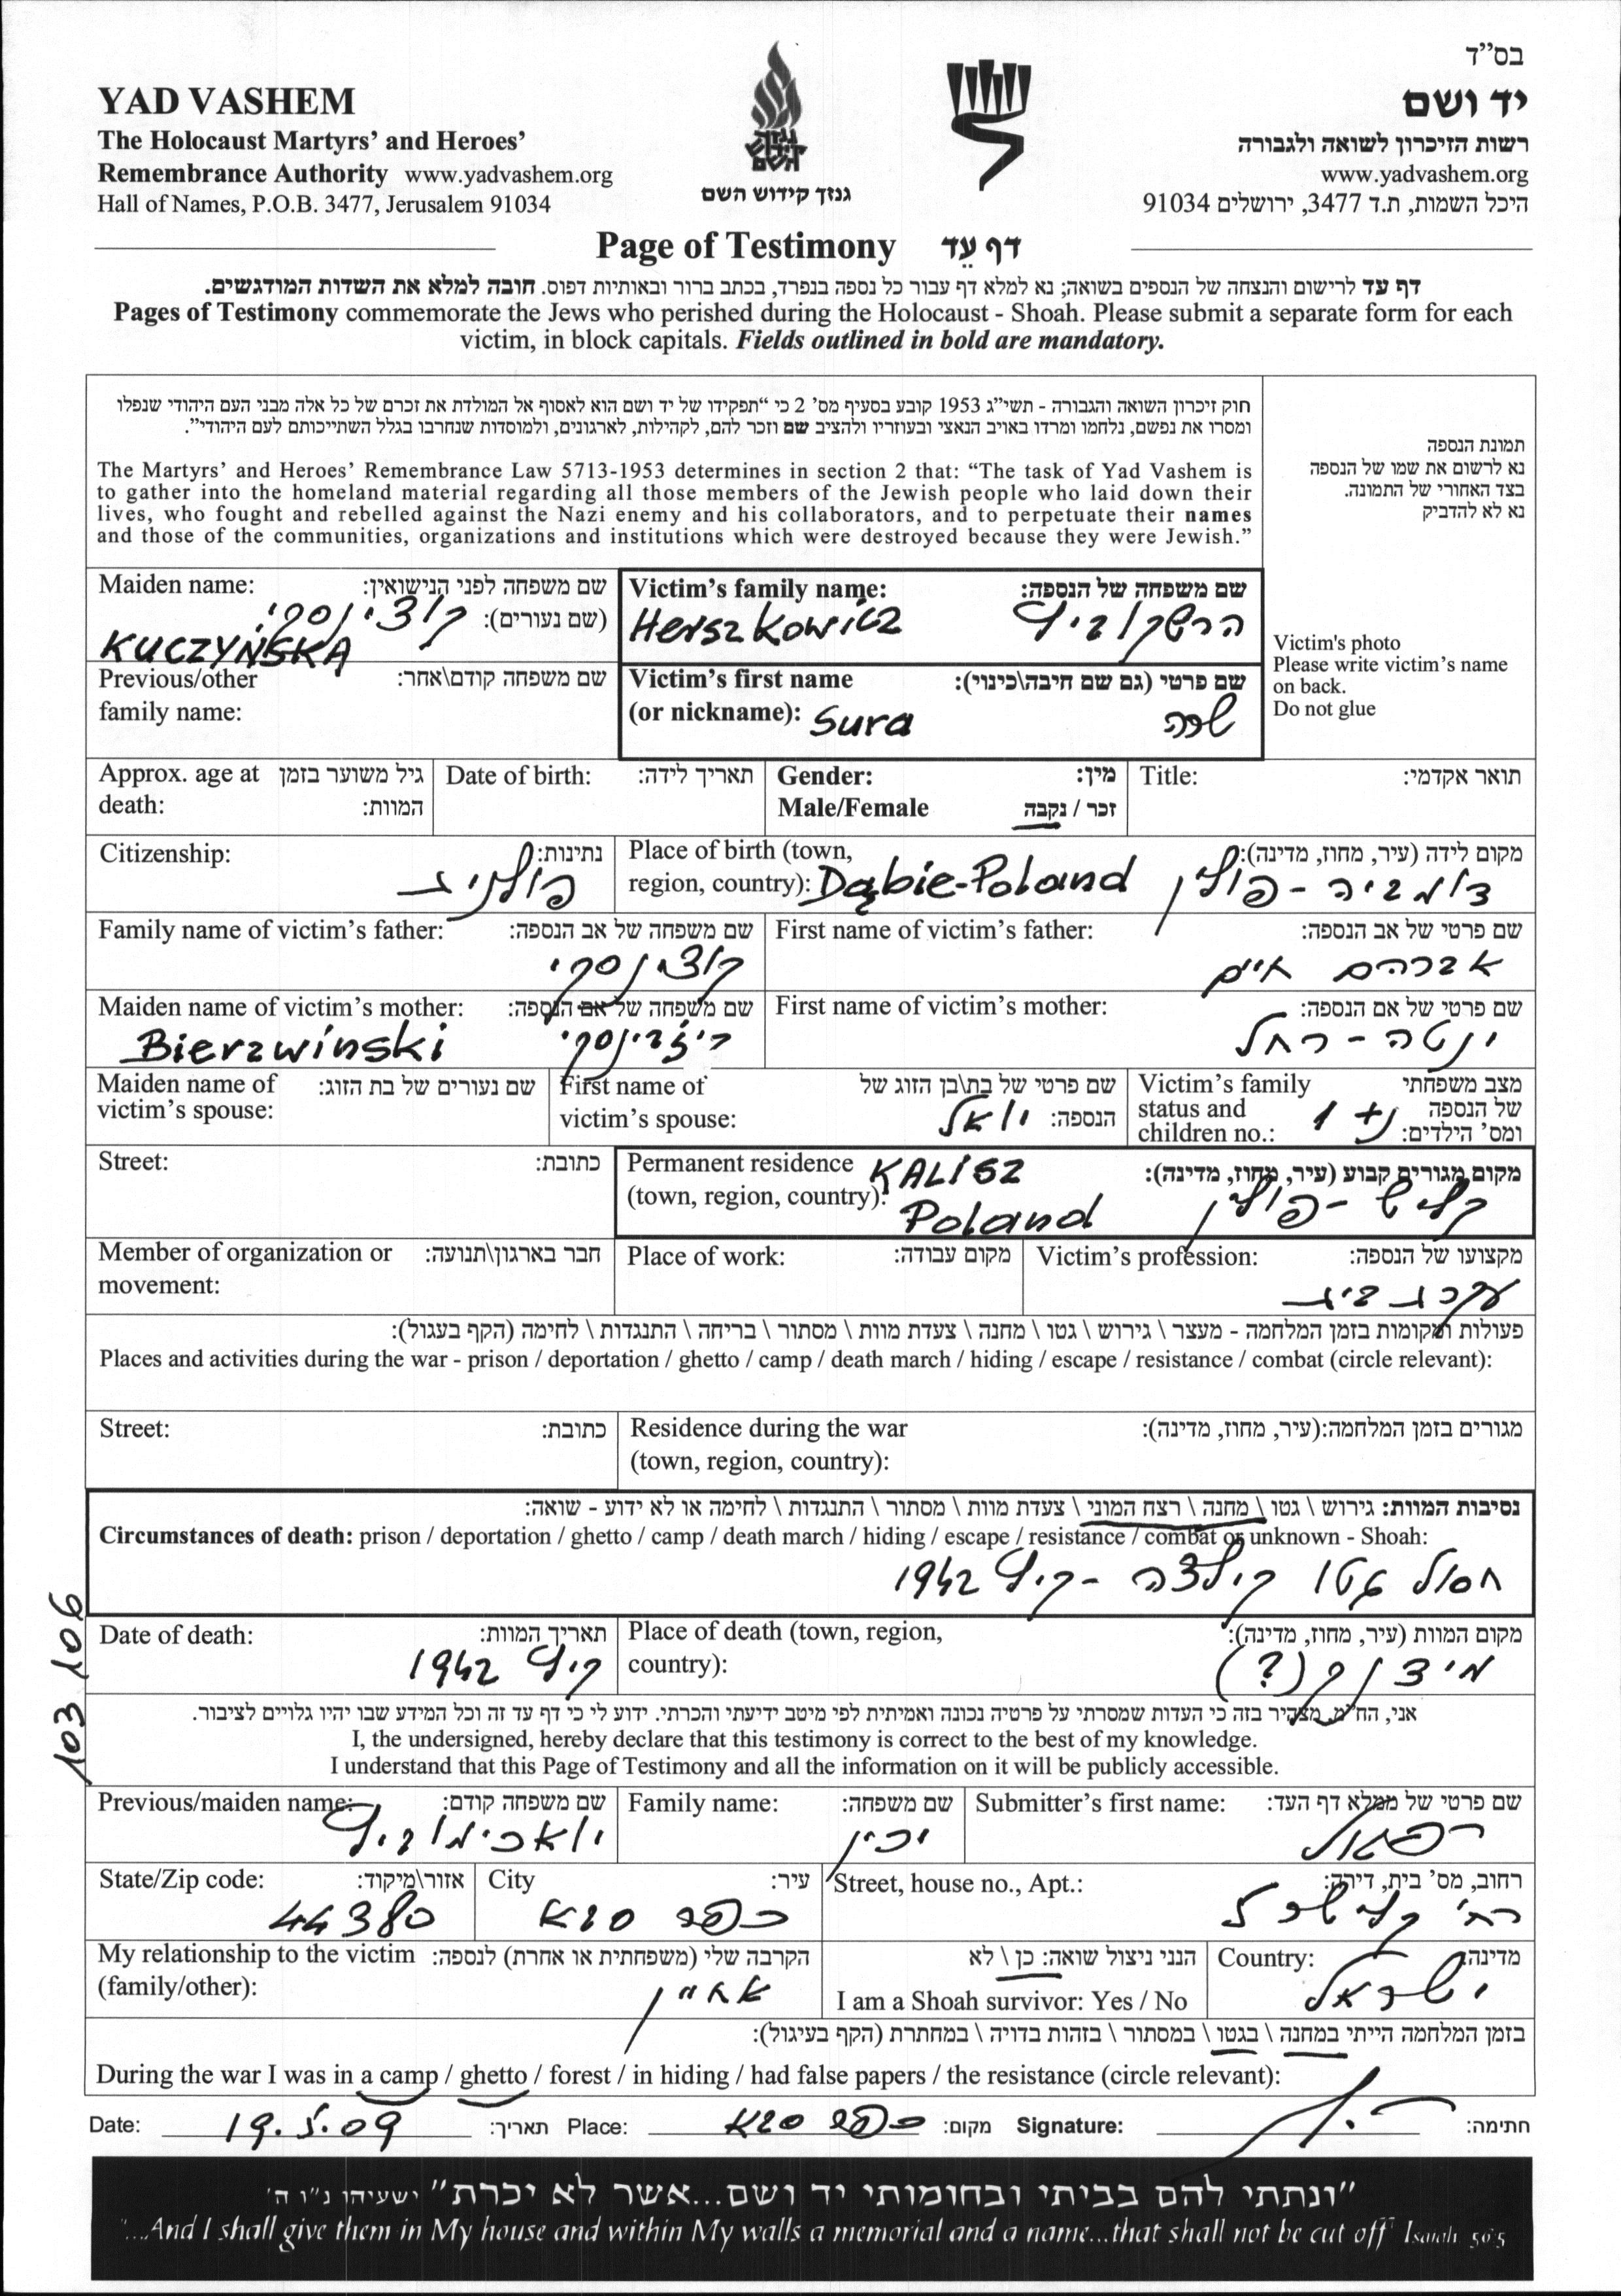 בס”ד
YAD VASHEM
The Holocaust Martyrs’ and Heroes’
Remembrance Authority www.yadvashem.org
Hall of Names, P.O.B. 3477, Jerusalem 91034
גנזך קידוש השם
יד ושם
רשות הזיכרון לשואה ולגבורה
www.yadvashem.org
היכל השמות, ת.ד 3477, ירושלים 91034
Page of Testimony דף עֵד
דף עד לרישום והנצחה של הנספים בשואה; נא למלא דף עבור כל נספה בנפרד, בכתב ברור ובאותיות דפוס. חובה למלא את השדות המודגשים.
Pages of Testimony commemorate the Jews who perished during the Holocaust - Shoah. Please submit a separate form for each
victim, in block capitals. Fields outlined in bold are mandatory.
חוק זיכרון השואה והגבורה - תשי”ג 1953 קובע בסעיף מס’ 2 כי “תפקידו של יד ושם הוא לאסוף אל המולדת את זכרם של כל אלה מבני העם היהודי שנפלו
ומסרו את נפשם, נלחמו ומרדו באויב הנאצי ובעוזריו ולהציב שם וזכר להם, לקהילות, לארגונים, ולמוסדות שנחרבו בגלל השתייכותם לעם היהודי”.
The Martyrs’ and Heroes’ Remembrance Law 5713-1953 determines in section 2 that: “The task of Yad Vashem is
to gather into the homeland material regarding all those members of the Jewish people who laid down their
lives, who fought and rebelled against the Nazi enemy and his collaborators, and to perpetuate their names
and those of the communities, organizations and institutions which were destroyed because they were Jewish.”
תמונת הנספה
נא לרשום את שמו של הנספה
בצד האחורי של התמונה.
נא לא להדביק
Victim's photo
Please write victim’s name
on back.
Do not glue
Maiden name: שם משפחה לפני הנישואין:
(שם נעורים): קוצ'ינסקי
KUCZYŃSKA
Victim’s family name: שם משפחה של הנספה:
Herszkowicz הרשקוביץ
Previous/other שם משפחה קודם\אחר:
family name:
Victim’s first name שם פרטי (גם שם חיבה\כינוי):
(or nickname): Sura שרה
Approx. age at גיל משוער בזמן
death: המוות:
Date of birth: תאריך לידה:
Gender: מין:
Male/Female זכר / נקבה
Title: תואר אקדמי:
Citizenship: נתינות:
פולניה
Place of birth (town, מקום לידה (עיר, מחוז, מדינה):
region, country): Dąbie-Poland דומביה - פולין
Family name of victim’s father: שם משפחה של אב הנספה:
קוצ'ינסקי
First name of victim’s father: שם פרטי של אב הנספה:
אברהם חיים
Maiden name of victim’s mother: שם משפחה של אם הנספה:
Bierzwinski בייז'בינסקי
First name of victim’s mother: שם פרטי של אם הנספה:
ינטה - רחל
Maiden name of שם נעורים של בת הזוג:
victim’s spouse:
First name of שם פרטי של בת\בן הזוג של
victim’s spouse: הנספה: יואל
Victim’s family מצב משפחתי
status and של הנספה
children no.: ומס’ הילדים: נ + 1
Street: כתובת:
Permanent residence KALISZ מקום מגורים קבוע (עיר, מחוז, מדינה):
(town, region, country): Poland קליש - פולין
Member of organization or חבר בארגון\תנועה:
movement:
Place of work: מקום עבודה:
Victim’s profession: מקצועו של הנספה:
עקרת בית
פעולות ומקומות בזמן המלחמה - מעצר \ גירוש \ גטו \ מחנה \ צעדת מוות \ מסתור \ בריחה \ התנגדות \ לחימה (הקף בעגול):
Places and activities during the war - prison / deportation / ghetto / camp / death march / hiding / escape / resistance / combat (circle relevant):
Street: כתובת:
Residence during the war מגורים בזמן המלחמה:(עיר, מחוז, מדינה):
(town, region, country):
נסיבות המוות: גירוש \ גטו \ מחנה \ רצח המוני \ צעדת מוות \ מסתור \ התנגדות \ לחימה או לא ידוע - שואה:
Circumstances of death: prison / deportation / ghetto / camp / death march / hiding / escape / resistance / combat or unknown - Shoah:
חסול גטו קילצה - קיץ 1942
Date of death: תאריך המוות:
קיץ 1942
Place of death (town, region, מקום המוות (עיר, מחוז, מדינה):
country):
מידנק (?)
103 106
אני, הח”מ, מצהיר בזה כי העדות שמסרתי על פרטיה נכונה ואמיתית לפי מיטב ידיעתי והכרתי. ידוע לי כי דף עד זה וכל המידע שבו יהיו גלויים לציבור.
I, the undersigned, hereby declare that this testimony is correct to the best of my knowledge.
I understand that this Page of Testimony and all the information on it will be publicly accessible.
Previous/maiden name: שם משפחה קודם:
יואכימוביץ
Family name: שם משפחה:
יכין
Submitter’s first name: שם פרטי של ממלא דף העד:
רפאל
State/Zip code: אזור\מיקוד:
44380
City עיר:
כפר סבא
Street, house no., Apt.: רחוב, מס’ בית, דירה:
רח'
My relationship to the victim הקרבה שלי (משפחתית או אחרת) לנספה:
(family/other): אחיין
הנני ניצול שואה: כן \ לא
I am a Shoah survivor: Yes / No
Country: מדינה:
ישראל
בזמן המלחמה הייתי במחנה \ בגטו \ במסתור \ בזהות בדויה \ במחתרת (הקף בעיגול):
During the war I was in a camp / ghetto / forest / in hiding / had false papers / the resistance (circle relevant):
Date: 19.5.09 תאריך: Place: כפר סבא מקום: Signature: חתימה:
“ונתתי להם בביתי ובחומותי יד ושם...אשר לא יכרת” ישעיהו נ”ו ה'
“...And I shall give them in My house and within My walls a memorial and a name...that shall not be cut off” Isaiah 56:5